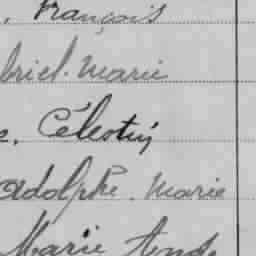 , François
briel. Marie
e, Célestin
adolphe. Marie
Marie